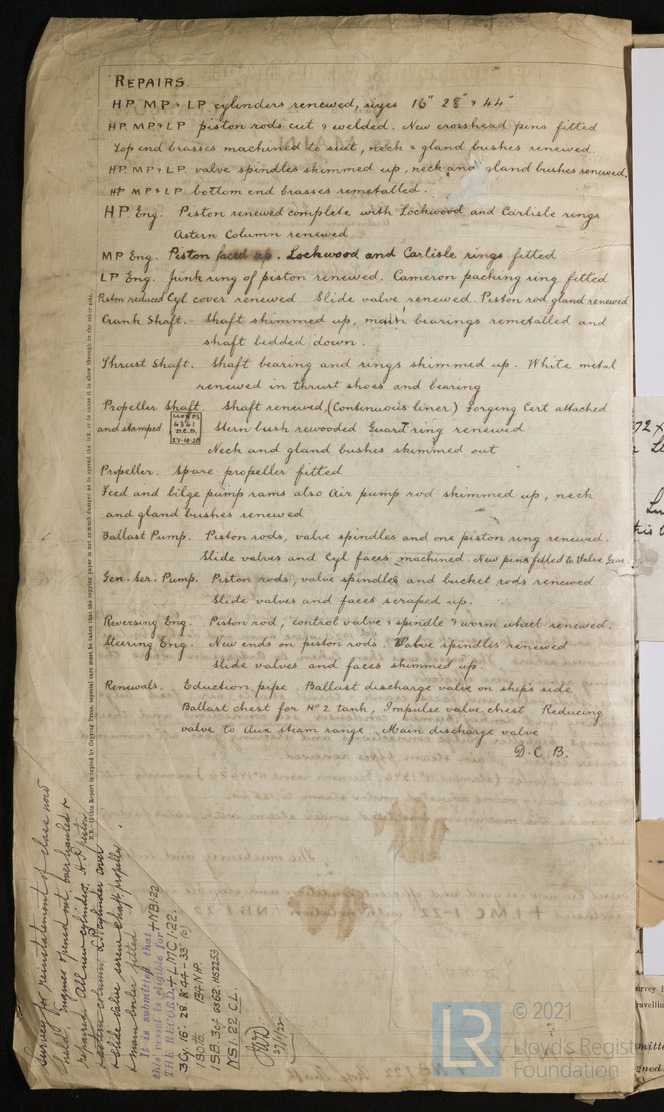 REPAIRS
HP. MP & LP cylinders renewed, sizes 16" 28" & 44"
HP. MP & LP piston rods cut & welded. New crosshead pins fitted
Top end brasses machined to suit, neck & gland bushes renewed
HP. MP & LP valve spindles skimmed up, neck and gland bushes renewed.
HP MP & LP bottom end brasses remetalled.
HP. Eng. Piston renewed complete with Lockwood and Carlisle rings
Astern Column renewed
MP Eng. Piston faced up. Lockwood and Carlisle rings fitted
LP Eng. Junk ring of piston renewed. Cameron packing ring fitted
Piston reduced Cyl cover renewed Slide valve renewed Piston rod gland renewed
Crank Shaft. Shaft skimmed up, main bearings remetalled and
shaft bedded down.
Thrust Shaft. Shaft bearing and rings skimmed up. White metal
renewed in thrust shoes and bearing
Propeller Shaft. Shaft renewed, (Continuous liner) Forging Cert attached
and stamped LLOYDS 6361 D.C.B. Stern bush rewooded Guard ring renewed
Neck and gland bushes skimmed out
Propeller. Spare propeller fitted
Feed and bilge pump rams also Air pump rod skimmed up, neck
and gland bushes renewed
Ballast Pump. Piston rods, valve spindles and one piston ring renewed.
Slide valves and Cyl faces machined. New pins fitted to Valve Gear.
Gen. Ser. Pump. Piston rods, valve spindles and bucket rods renewed
Slide valves and faces scraped up.
Reversing Eng. Piston rod, control valve & spindle & worm wheel renewed.
Steering Eng. New ends on piston rods. Valve spindles renewed
Slide valves and faces skimmed up.
Renewals. Eduction pipe. Ballast discharge valve on ship's side
Ballast chest for No 2 tank, Impulse valve chest Reducing
valve to Aux steam range. Main discharge valve
D. C. B.
N.B.—If this Report is copied by Copying Press, especial care must be taken that the copying paper is not so much damped as to spread the ink, or to cause it to show through to the other side.
Survey for reinstatement of class now
held. Engines opened out overhauled &
repaired. All new cylinders, H.P. piston
& astern column, L.P. cylinder cover
& slide valve screw shaft, propeller
& main boiler fitted.
It is submitted that
this vessel is eligible for +NB 1.22
THE RECORD. + LMC 1.22.
3Cy. 16. 28. & 44 - 33
180 lb. 134 NHP.
1SB. 3cf
NS1.22 CL.
© 2021
Lloyd's Register
Foundation